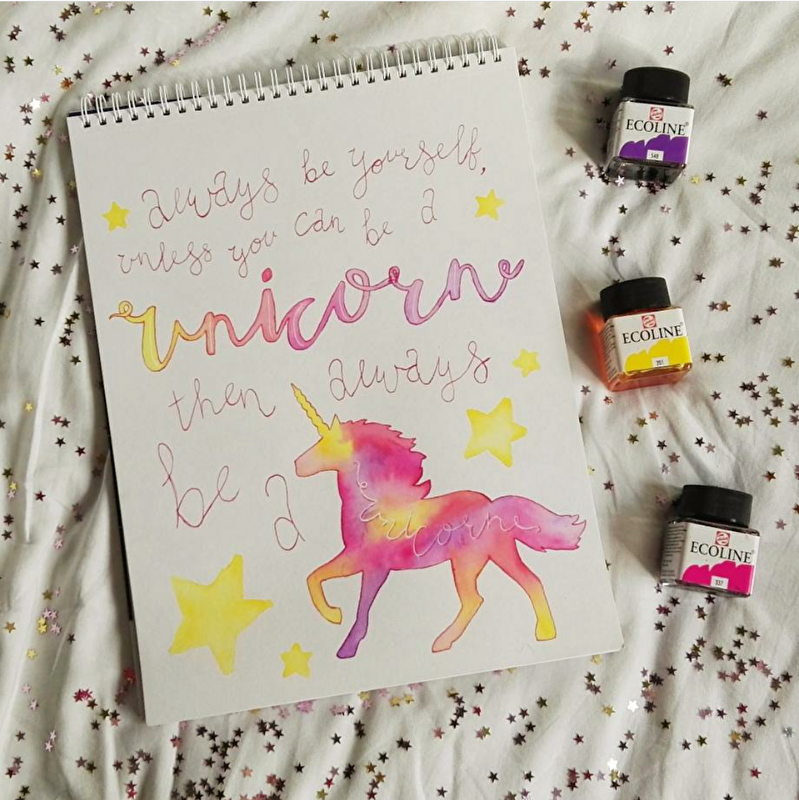 always be yourself,
unless you can be a
unicorn
then always
be a
unicorn
ECOLINE
548
ECOLINE
201
ECOLINE
337